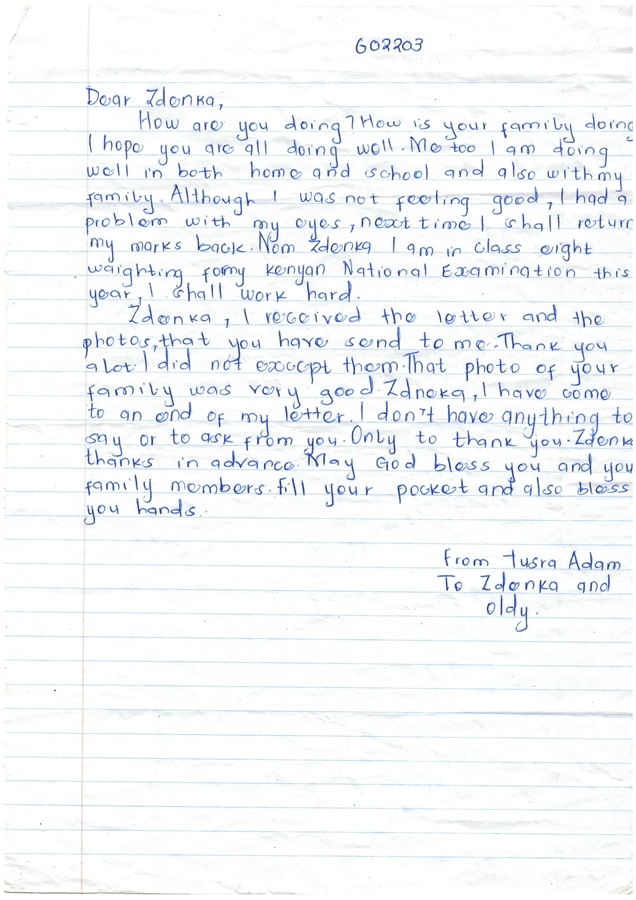 G02203
Dear Zdenka,
How are you doing? How is your family doing
I hope you are all doing well. Me too I am doing
well in both home and school and also with my
family. Although I was not feeling good, I had a
problem with my eyes, next time I shall return
my marks back. Nom Zdenka I am in class eight
waighting formy kenyan National Examination this
year, I shall work hard.
Zdenka, I received the letter and the
photos, that you have send to me. Thank you
alot I did not exccept them. That photo of your
family was very good. Zdneka, I have come
to an end of my letter. I don't have anything to
say or to ask from you. Only to thank you. Zdenk
thanks in advance. May God bless you and you
family members. fill your pocket and also bless
you hands.
From Tusra Adam
To Zdenka and
oldy.